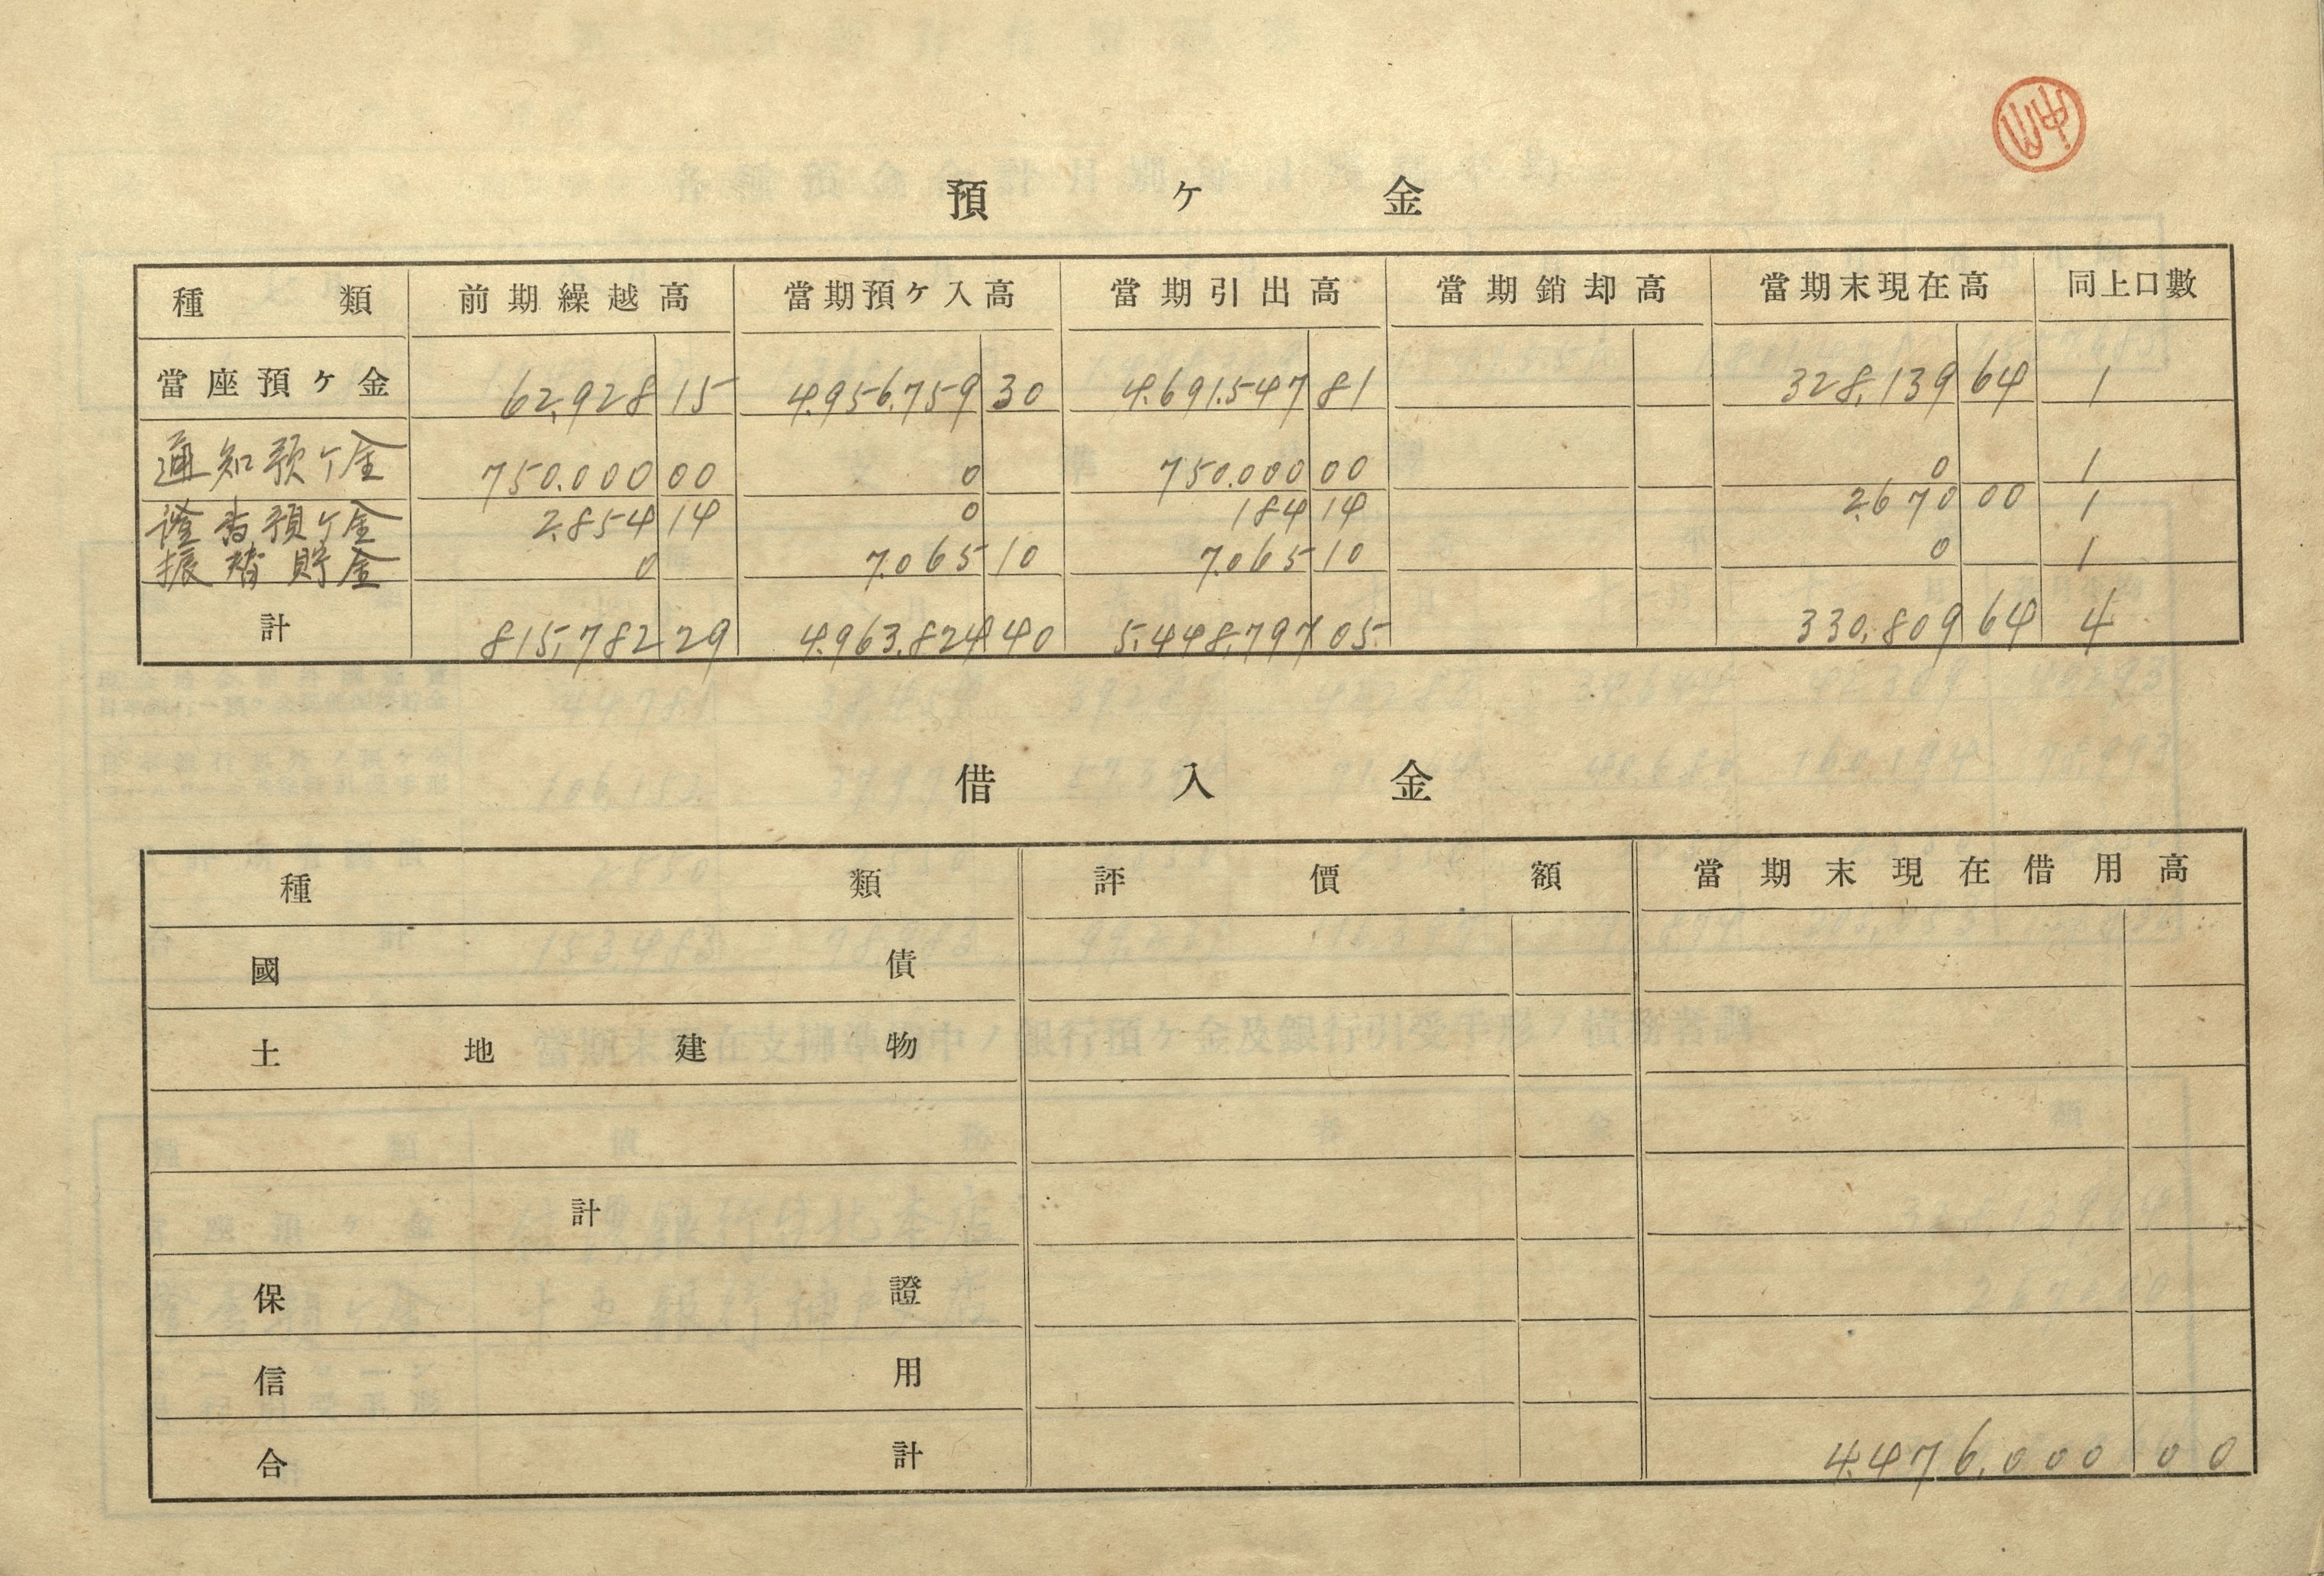 預ケ金
種類 前期繰越高 當期預ケ入高 當期引出高 當期銷却高 當期末現在高 同上口數
當座預ケ金 62,928 15 4.956.759 30 4.691.547 81 328,139 64 1
通知預ケ金 750.000 00 0 750.000 00 0 1
預ケ金 2.854 14 0 184 14 2.670 00 1
振替貯金 0 7.065 10 7.065 10 0 1
計 815,782 29 4.963.824 40 5.448,797 05 330,809 64 4
借入金
種類 評價額 當期末現在借用高
國債
土地建物
計
保證
信用
合計 4.476.000 00